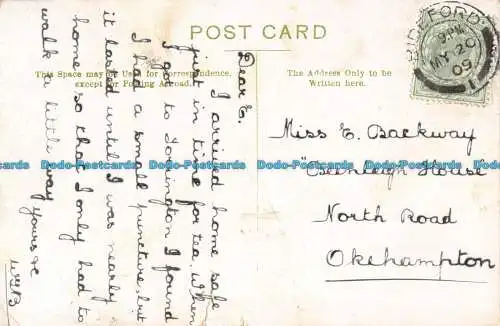 POST CARD
This Space may be Used for Correspondence,
except for Posting Abroad.
The Address Only to be
Written here.
BIDEFORD
9 PM
MY 20
09
Dear E.
I arrived home safe
just in time for tea. When
I got to Torrington I found
I had a small puncture, but
it lasted until I was nearly
home, so that I only had to
walk a little way
yours &c
WGB
Miss E. Backway
House
North Road
Okehampton
Dodo-Postcards Dodo-Postcards Dodo-Postcards Dodo-Postcards Dodo-Postcards